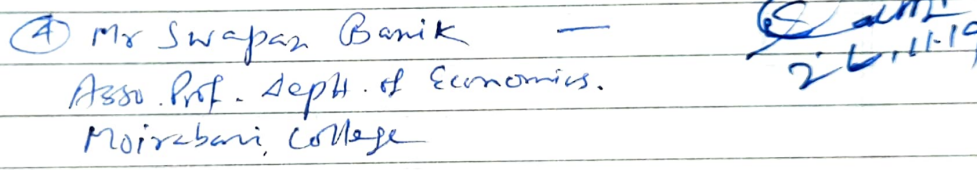 ④ Mr Swapan Banik —
26.11.19
Asso. Prof. Deptt. of Economics.
Moirabari, College